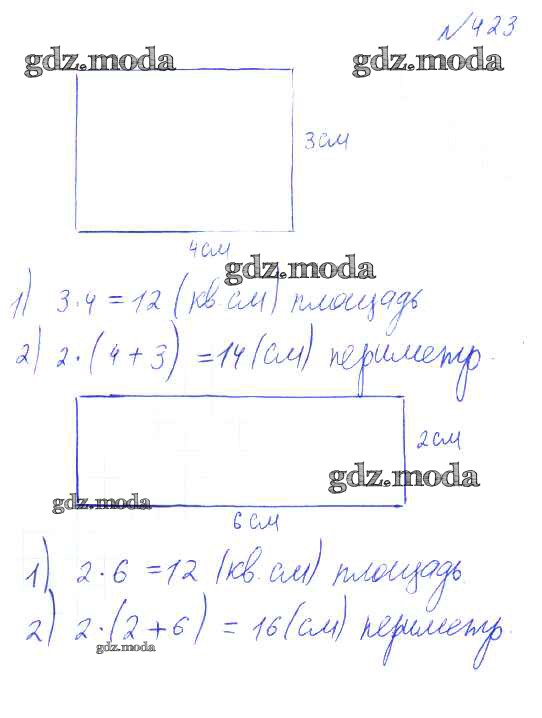 №423
gdz.moda gdz.moda
3см
4см
gdz.moda
1) 3·4=12 (кв.см) площадь
2) 2·(4+3) =14(см) периметр.
2см
gdz.moda
gdz.moda
6см
1) 2·6 =12 (кв.см) площадь.
2) 2·(2+6) = 16(см) периметр.
gdz.moda